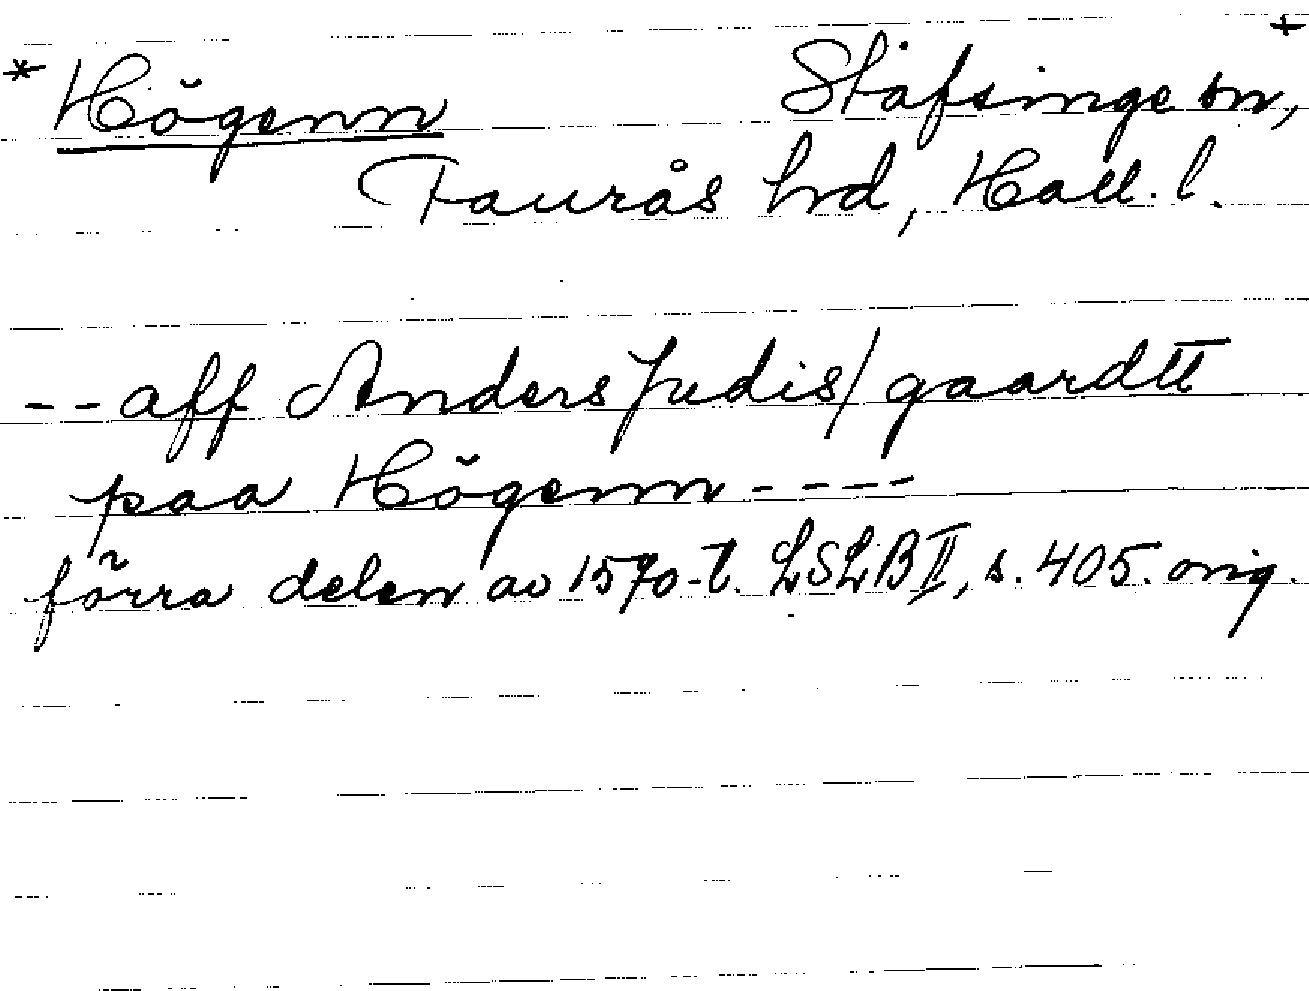 * Högenn Stafsinge sn, +
Faurås hrd, Hall. l.
-- aff Anders Judis/ gaardtt
paa Högenn ----
förra delen av 1570-t. LSLB II, s. 405. orig.